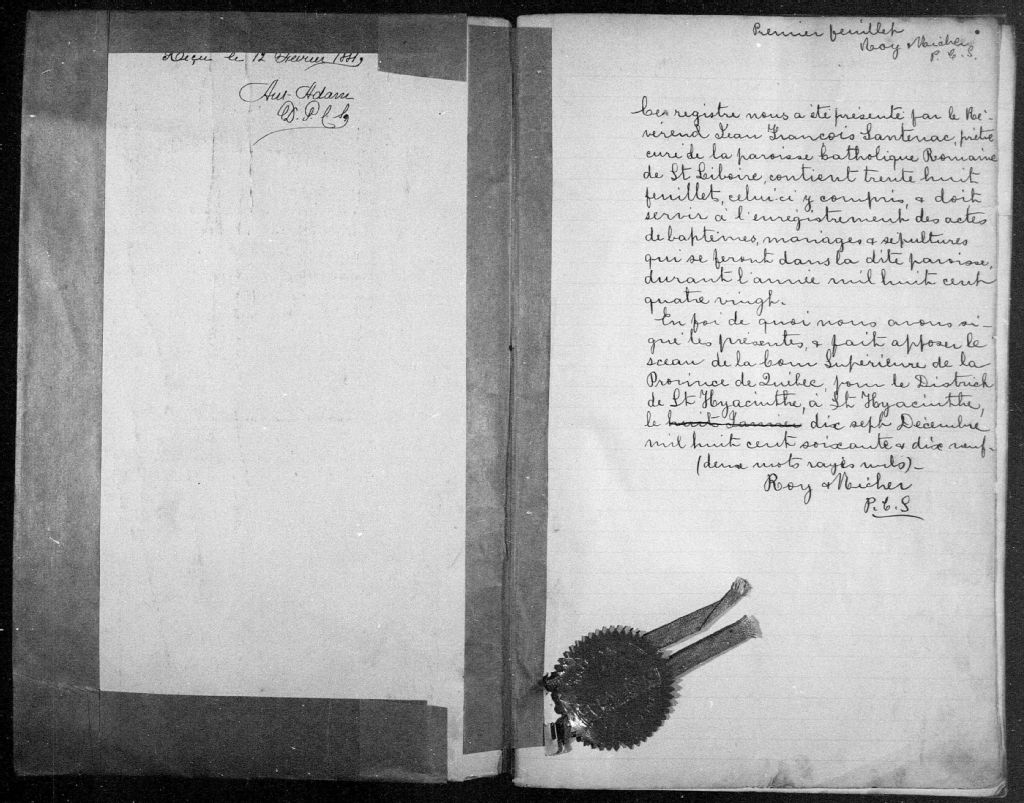 Reçu le 12 Février 1881,
Ant. Adam
D. P. C. S.
Premier feuillet
Roy & Micher
P. C. S.
Ce registre nous a été présenté par le Ré-
vérend Jean François Santenac, prêtre
curé de la paroisse Catholique Romaine
de St Liboire, contient trente huit
feuillet, celui ci y compris, & doit
servir à l'enregistrement des actes
de baptêmes, mariages & sépultures
qui se feront dans la dite paroisse,
durant l'année mil huit cent
quatre vingt.
En foi de quoi nous avons si-
gné les présentes, & fait apposer le
sceau de la Cour Supérieure de la
Province de Québec, pour le District
de St Hyacinthe, à St Hyacinthe,
le huit Janvier dix sept Décembre
mil huit cent soixante & dix neuf.
(deux mots rayés nuls)-
Roy & Micher
P. C. S